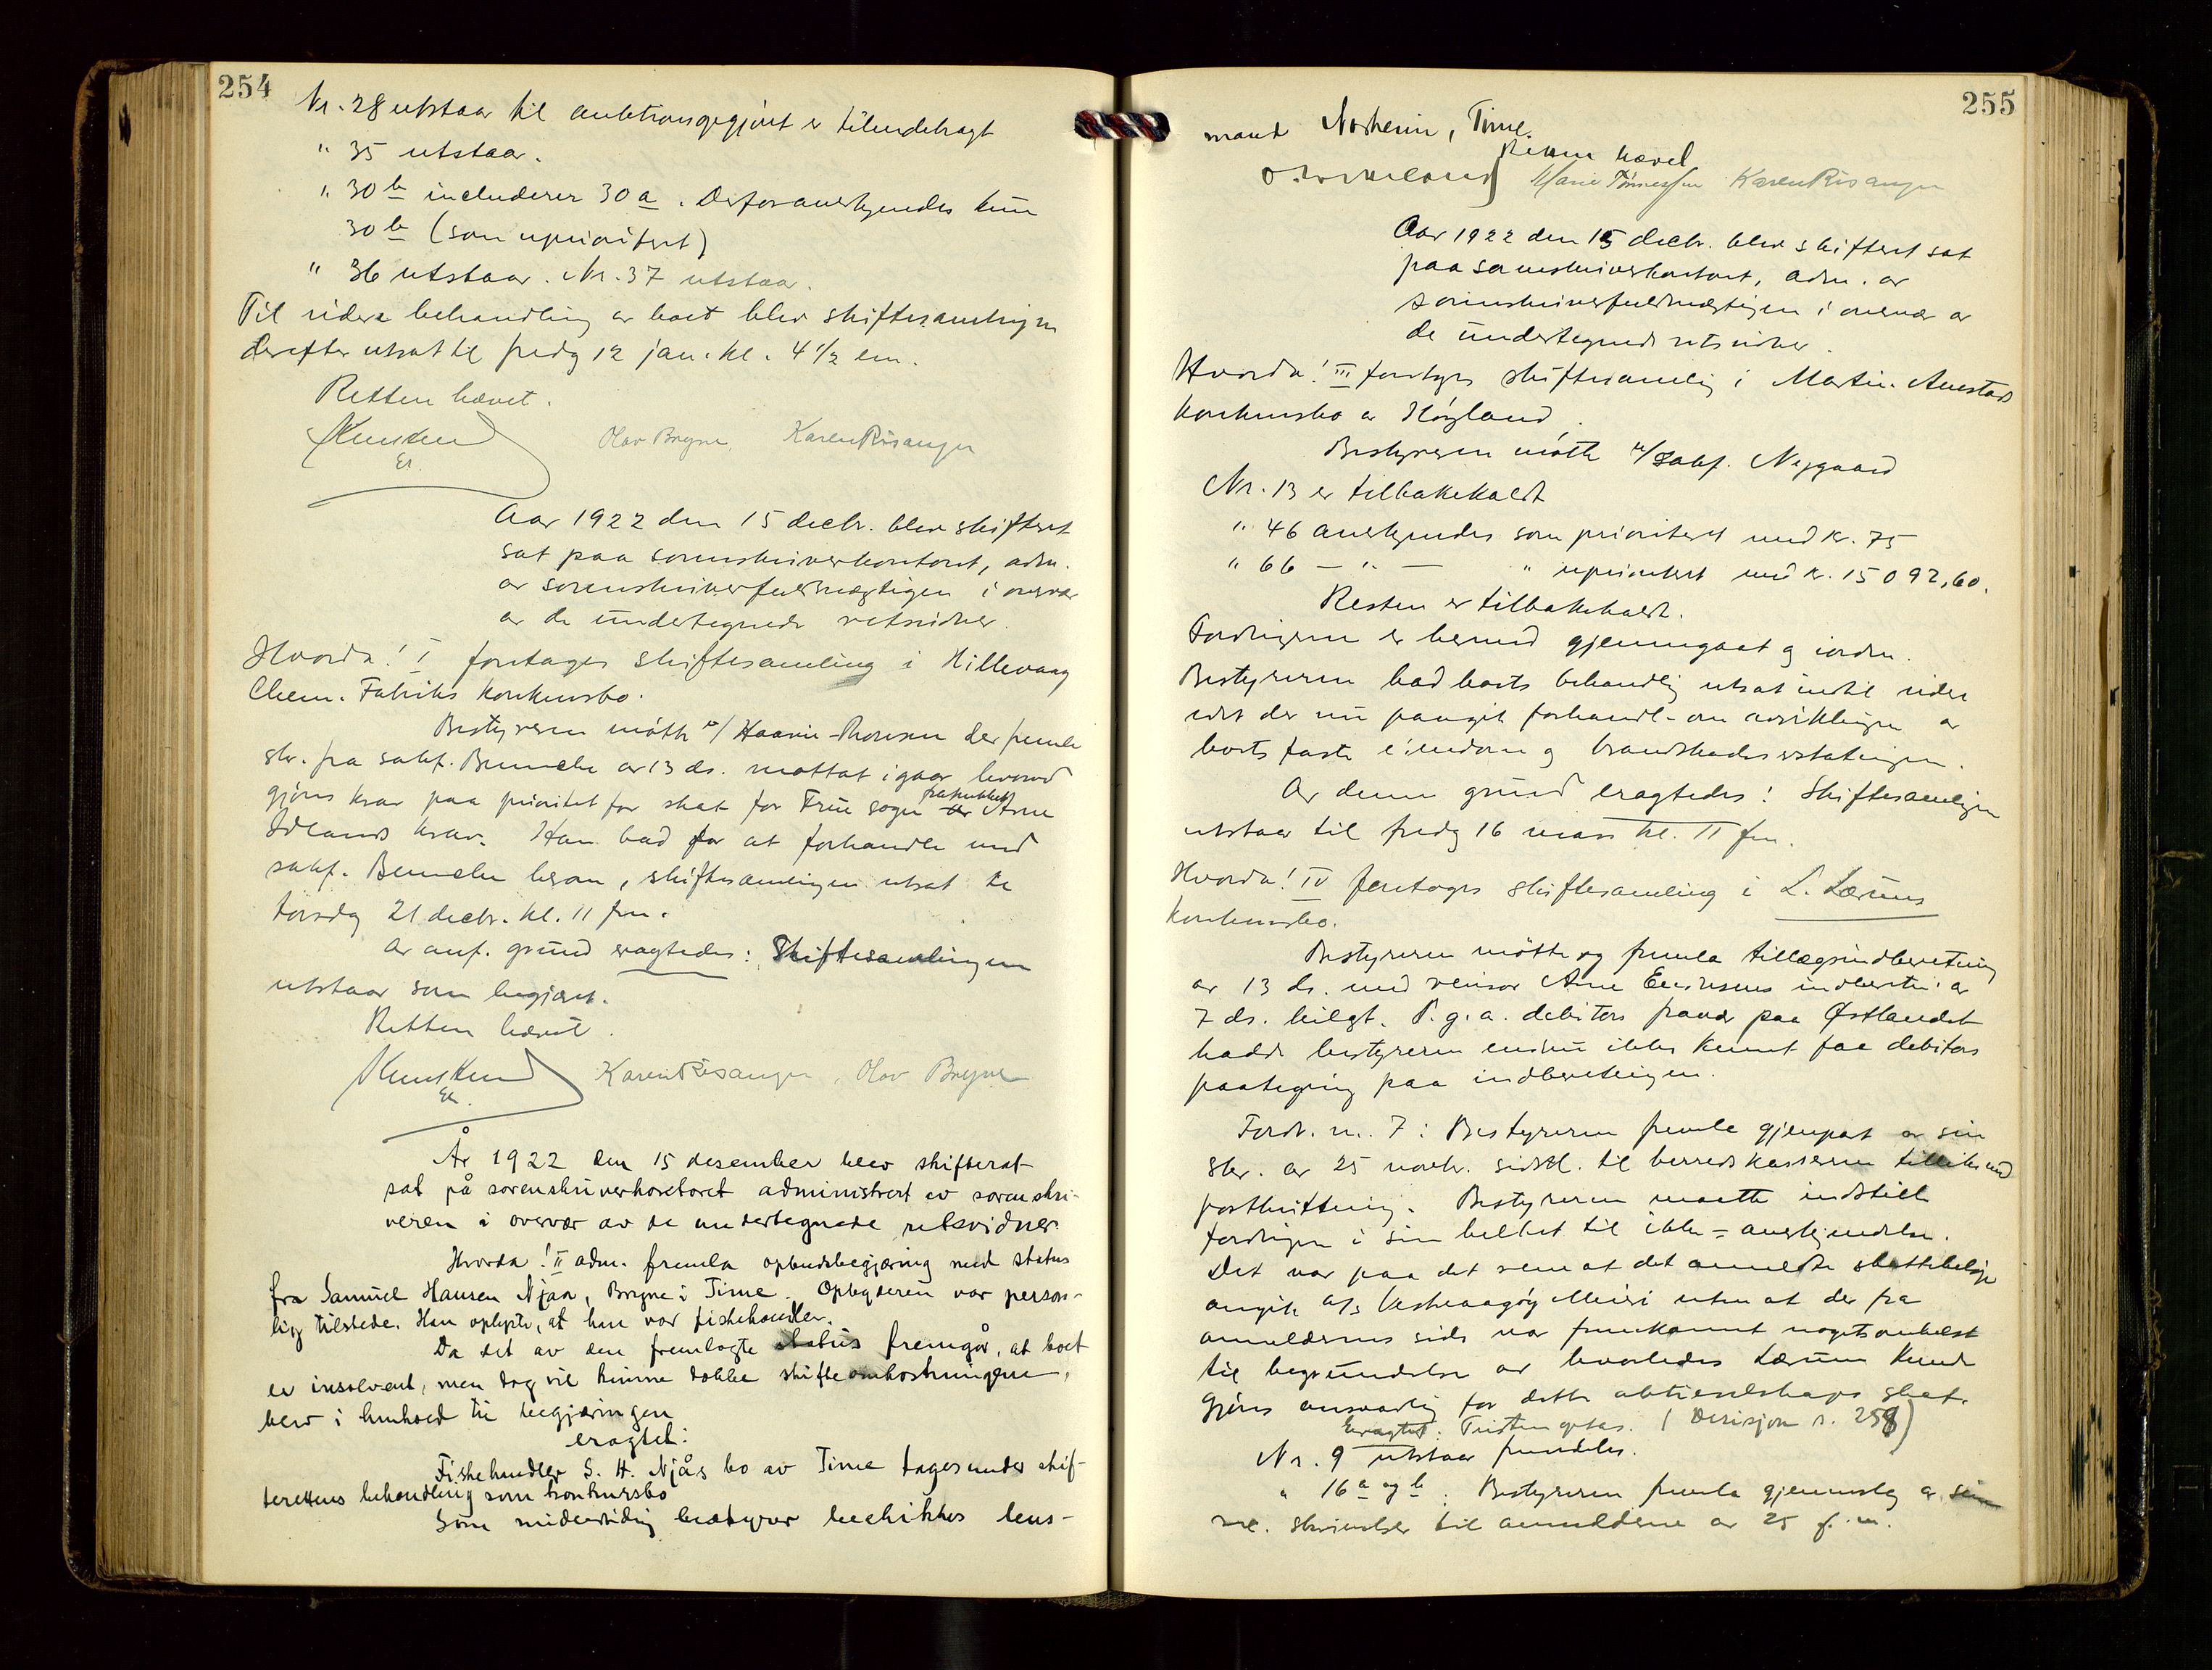 254
Nr. 28 utstaar til auktionsgegjöret er tilendebragt
" 35 utstaar.
" 30 b includerer 30 a. Derfor anerkjendes kun
30 b (som uprioritert)
" 36 utstaar. Nr. 37 utstaar.
Til videre behandling av boet blev skiftesamlingen
derefter utsat til fredg 12 jan. kl. 4 1/2 em.
Retten hævet.
Olav Bryne. Karen Risanger
Aar 1922 den 15 decbr. blev skifteret
sat paa sorenskriverkontoret, adm.
av sorenskriverfuldmægtigen i overvær
av de undertegnede retsvidner.
Hvorda! I foretages skiftesamling i Hillevaag
Chem. Fabriks konkursbo.
Bestyreren mötte v/ Haavie-Thoresen der fremla
skr. fra sakf. Bennche av 13 ds. mottat igaar hvorved
gjöres krav paa prioritet for skat for Frue sogn frafaldt Arne
Idlands krav. Han bad for at forhandle med
sakf. Bennche herom, skiftesamlingen utsat til
torsdg 21 decbr. kl. 11 fm.
Av anf. grund eragtedes: Skiftesamlingen
utstaar som begjært.
Retten hævet.
Karen Risanger, Olav Bryne
År 1922 den 15 desember blev skifterat
sat på sorenskriverkontoret administrert av sorenskri-
veren i overvær av de undertegnede retsvidner.
Hvorda! II adm. fremla opbudsbegjæring med status
fra Samuel Hansen Njaa, Bryne i Time. Opbyderen var person-
lig tilstede. Han oplyste, at han var fiskehandler.
Da det av den fremlagte status fremgår, at boet
er insolvent, men dog vil kunne dække skifteomkostningene,
blev i henhold til begjæringen
eragtet:
Fiskehandler S. H. Njås bo av Time tages under skif-
terettens behandling som konkursbo
Som midlertidig bestyrer beskikkes lens-
255
mand Norheim, Time.
Retten hævet
O. Omeland Marie Tönnessen Karen Risanger
Aar 1922 den 15 decbr. blev skifteret sat
paa sorenskriverkontoret, adm. av
sorenskriverfuldmægtigen i overvær av
de undertegnede retsvidner.
Hvorda! III foretages skiftesamling i Martin Avestads
konkursbo av Högland.
Bestyreren mötte v/ sakf. Nygaard
Nr. 13 er tilbakekaldt
" 46 anerkjendes som prioritert med kr. 75
" 66 — " — " uprioritert med kr. 15 092,60.
Resten er tilbakekaldt.
Fordringerne er hermed gjennemgaat og iorden.
Bestyreren bad boets behandling utsat indtil videre
idet der nu paagik forhandl. om avviklingen av
boets faste eiendom og brandskadeerstatningen.
Av denne grund eragtedes: Skiftesamlingen
utstaar til fredg 16 mars kl. 11 fm.
Hvorda! IV foretages skiftesamling i L. Lærums
konkursbo.
Bestyreren mötte og fremla tillægsindberetning
av 13 ds. med revisor Arne Ellingsens indberetn. av
7 ds. bilagt. P. g. a. debitors fravær paa Östlandet
hadde bestyreren endnu ikke kunnet faa debitors
paategning paa indberetningen.
Fordr. nr. 7: Bestyreren fremla gjenpart av sin
skr. av 25 novbr. sidstl. til herredskassereren tillikemed
postkvittering. Bestyreren maatte indstille
fordringen i sin helhet til ikke-anerkjendelse.
Det var paa det rene at det anmeldte skattebelöp
angik A/S Vestvaagöy Meieri uten at der fra
anmelderens side var fremkommet nogetsomhelst
til begrundelse av hvorledes Lærum kunde
gjöres ansvarlig for dette aktieselskaps skat.
Eragtet: Tvisten optas. (Decisjon s. 258)
Nr. 9 utstaar fremdeles.
" 16 a og b: Bestyreren fremla gjennemslag av sin
skrivelser til anmelderne av 25 f. m.